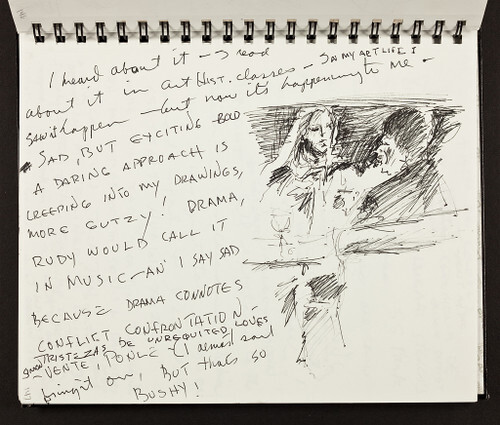 I heard about it - I read
about it in art Hist. classes - IN MY ART LIFE I
saw it happen - but now it's happening to me -
SAD, BUT EXCITING BOLD
A DARING APPROACH IS
CREEPING INTO MY DRAWINGS,
MORE GUTZY! DRAMA,
RUDY WOULD CALL IT
IN MUSIC - AN' I SAY SAD
BECAUSE DRAMA CONNOTES
CONFLICT CONFRONTATION -
TRISTEZAS DE UNREQUITED LOVES
- VENTE, PONLE - (I almost said
bring it on, BUT thats SO
BUSHY!